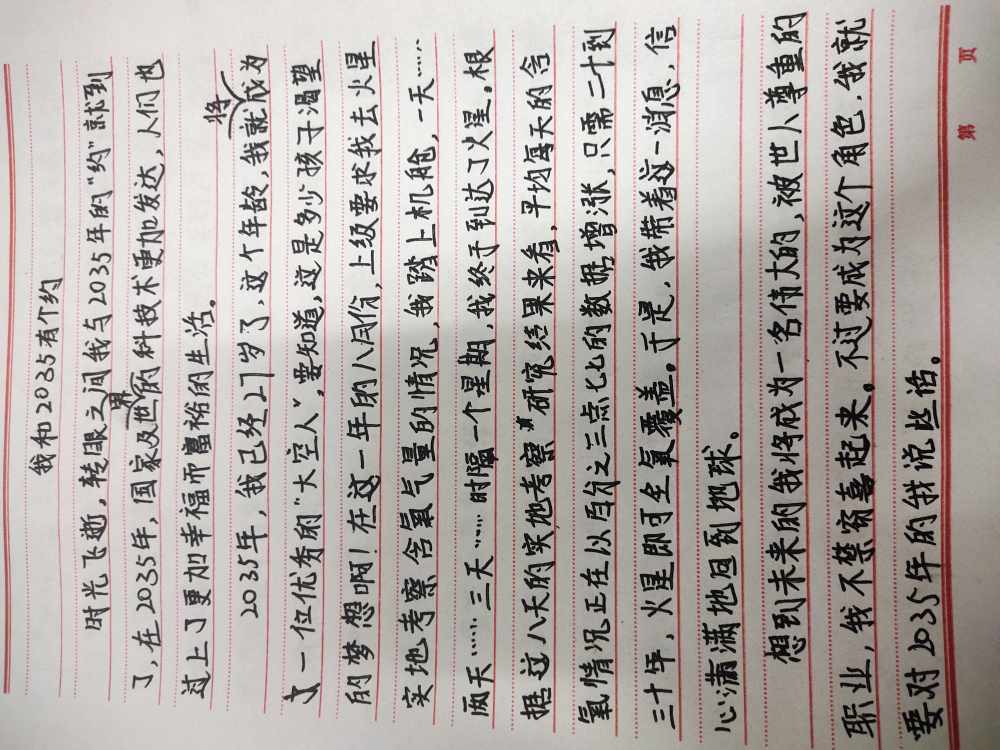 我和2035有个约
时光飞逝，转眼之间我与2035年的“约”就到
了，在2035年，国家及世界的科技术更加发达，人们也
过上了更加幸福而富裕的生活。
2035年，我已经27岁了，这个年龄，我就将成为
一位优秀的“太空人”，要知道，这是多少孩子渴望
的梦想啊！在这一年的八月份，上级要求我去火星
实地考察含氧气量的情况，我踏上机舱，一天……
两天……三天……时隔一个星期，我终于到达了火星。根
据这八天的实地考察，研究结果来看，平均每天的含
氧情况正在以百分之三点七七的数据增涨，只需二十到
三十年，火星即可全氧覆盖。于是，我带着这一消息，信
心满满地回到地球。
想到未来的我将成为一名伟大的，被世人尊重的
职业，我不禁窃喜起来。不过要成为这个角色，我就
要对2035年的我说些话。
第 页